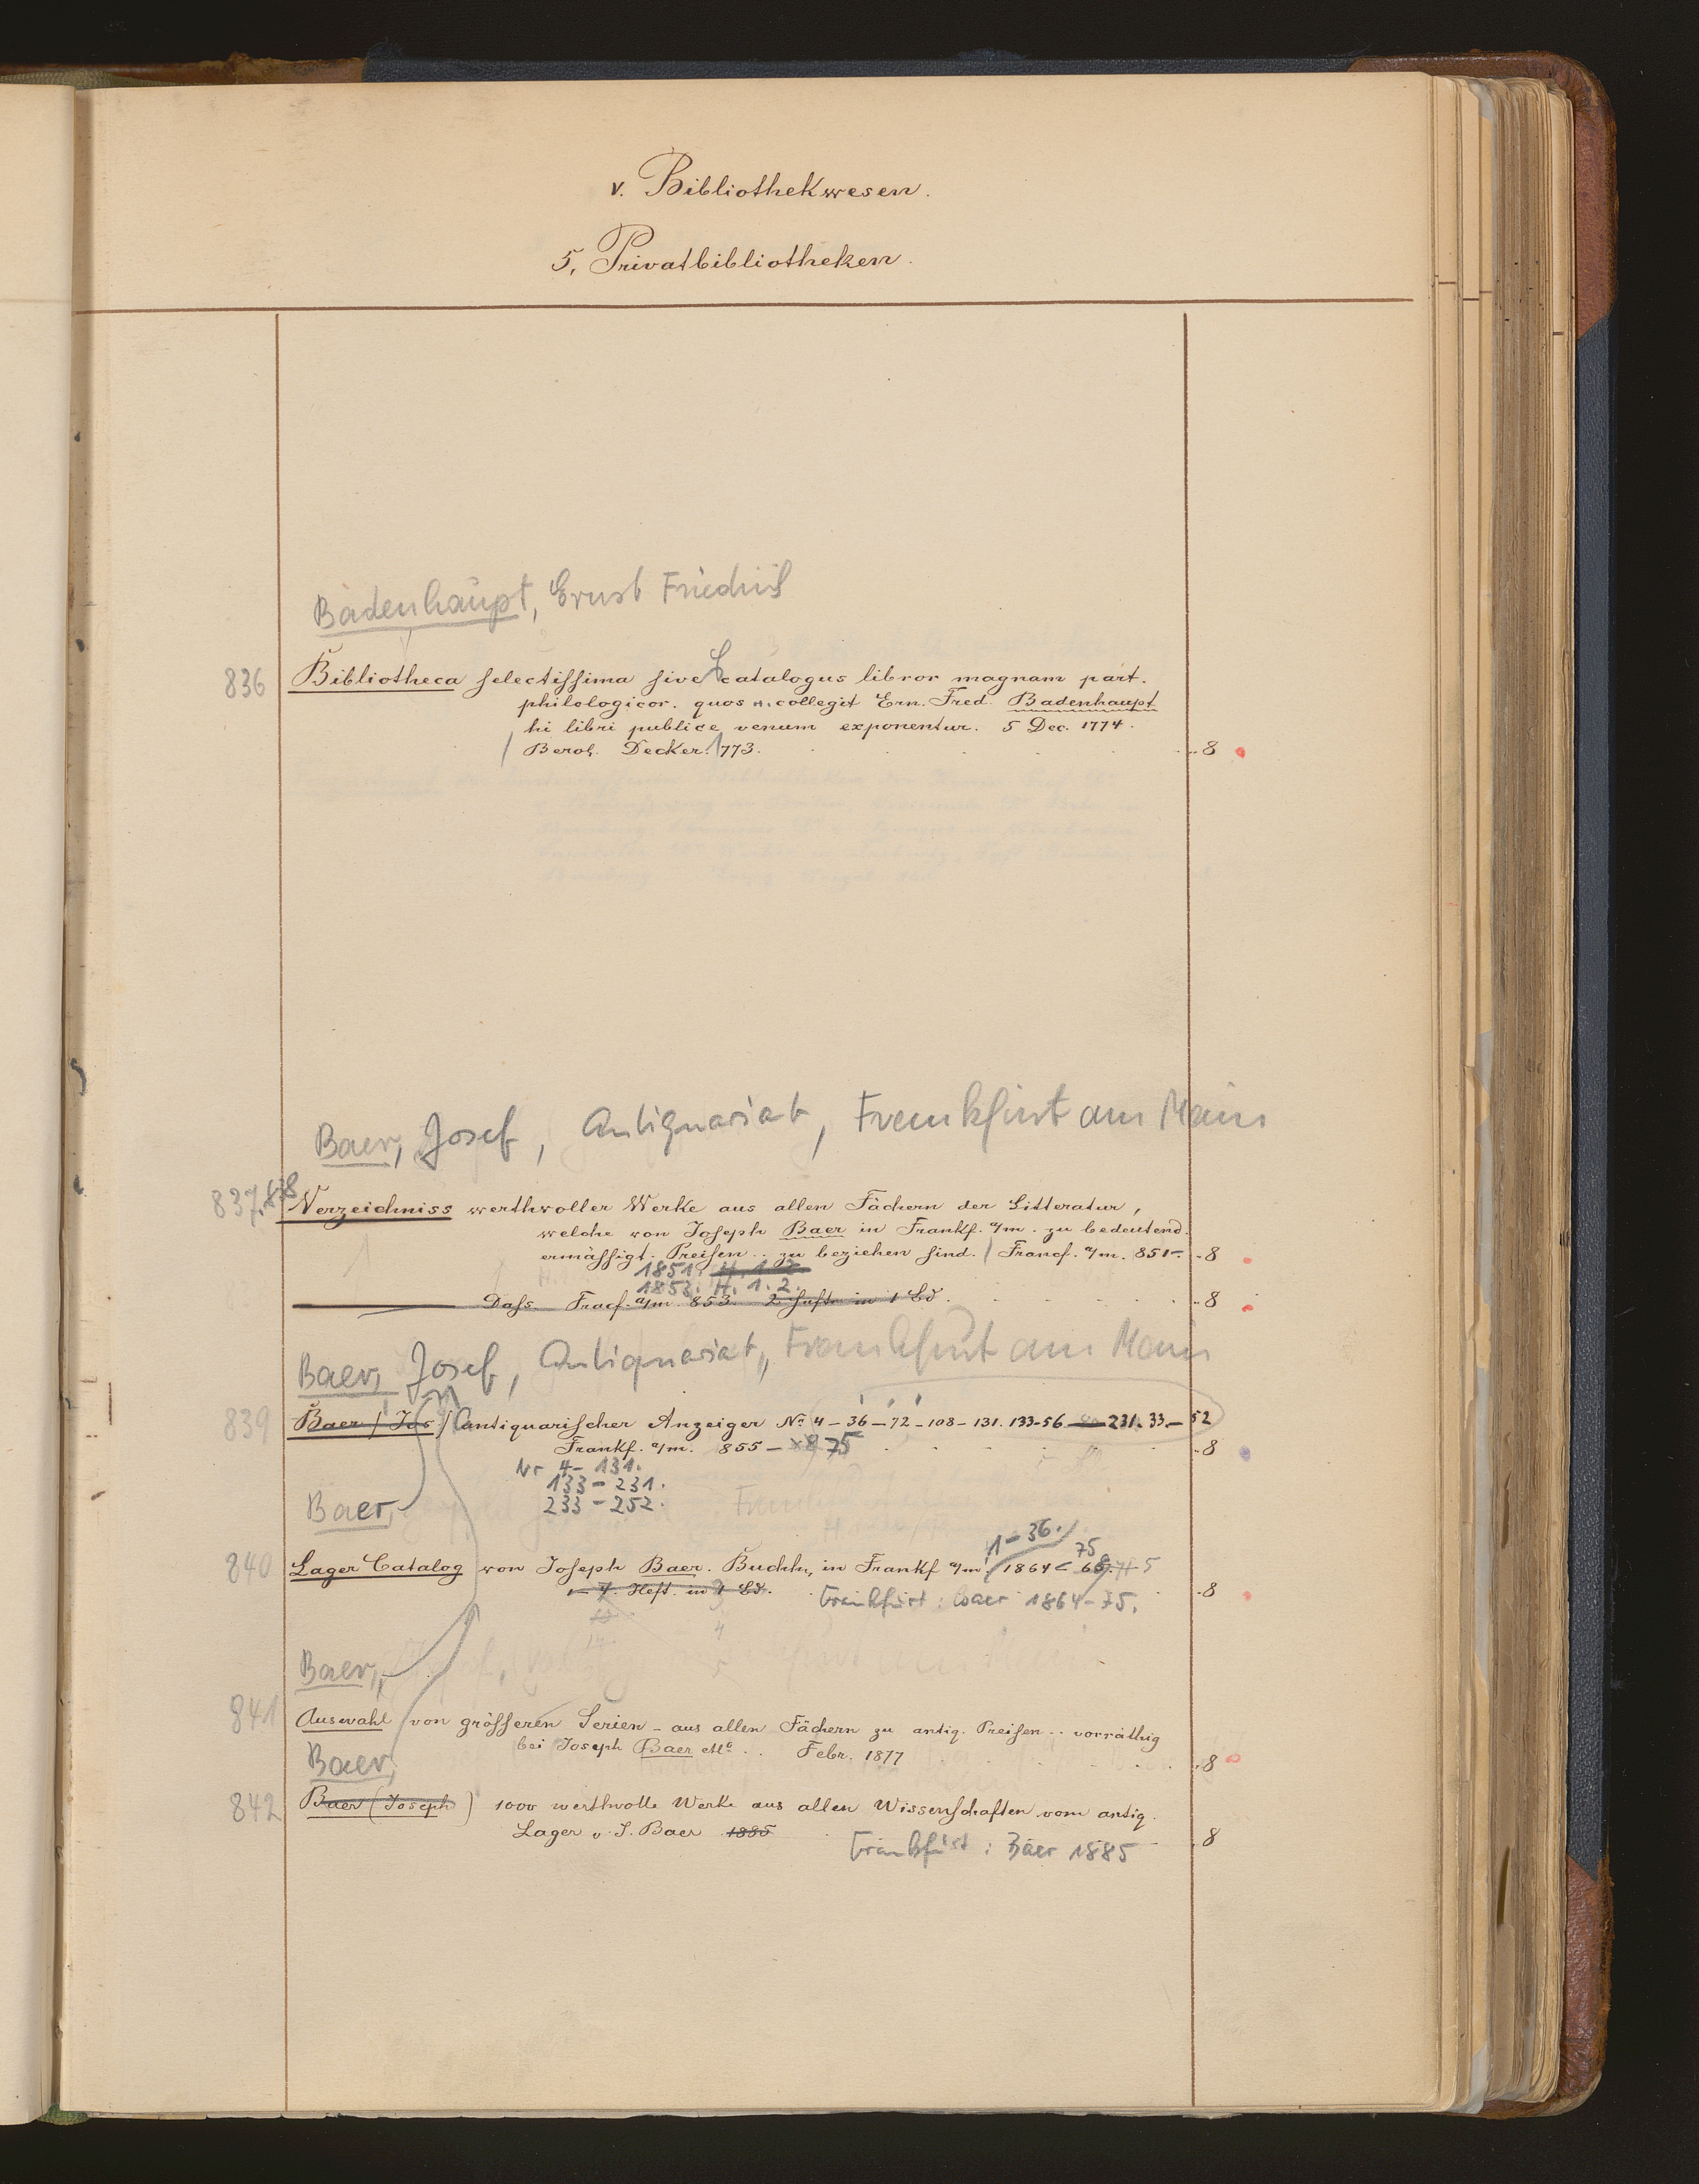 v. Bibliothekwesen.
5, Privatbibliotheken.
Badenhaupt, Ernst Friedrich
836 Bibliotheca selectissima sive Catalogus libror magnam part.
philologicor. quos H. collegit Ern. Fred. Badenhaupt
hi libri publice venum exponentur. 5 Dec. 1774.
Berol. Decker. 1773. 8
Baer, Josef, Antiquariat, Frankfurt am Main
837.838 Verzeichniss werthvoller Werke aus allen Fächern der Litteratur,
welche von Joseph Baer in Frankf. a/m. zu bedeutend.
ermässigt. Preisen .. zu beziehen sind. Francf. a/m. 851. 8
1851. H. 1.2
1853. H. 1. 2.
Dass. Fracf. a/m. 853. 2 Hefte in 1 Bd. 8
Baer, Josef, Antiquariat, Frankfurt am Main
839 Baer (Jos) Antiquarischer Anzeiger No. 4 - 36 - 72 - 108 - 131. 133-56 - 231. 33 - 52
Frankf. a/m. 855 - 75 8
Nr 4 - 131.
133 - 231.
Baer, 233 - 252.
1 - 36. 75
840 Lager Catalog von Joseph Baer. Buchh. in Frankf a/m. 1864 - 68. 5
1 - 7. Heft. in 1 Bd. Frankfurt: Baer 1864-75. 8
14. 4
Baer,
841 Auswahl von grösseren Serien - aus allen Fächern zu antiq. Preisen .. vorräthig
bei Joseph Baer &Co .. Febr. 1877 8
Baer,
842 Baer (Joseph) 1000 werthvolle Werke aus allen Wissenschaften vom antiq.
Lager v. J. Baer 1885 8
Frankfurt: Baer 1885